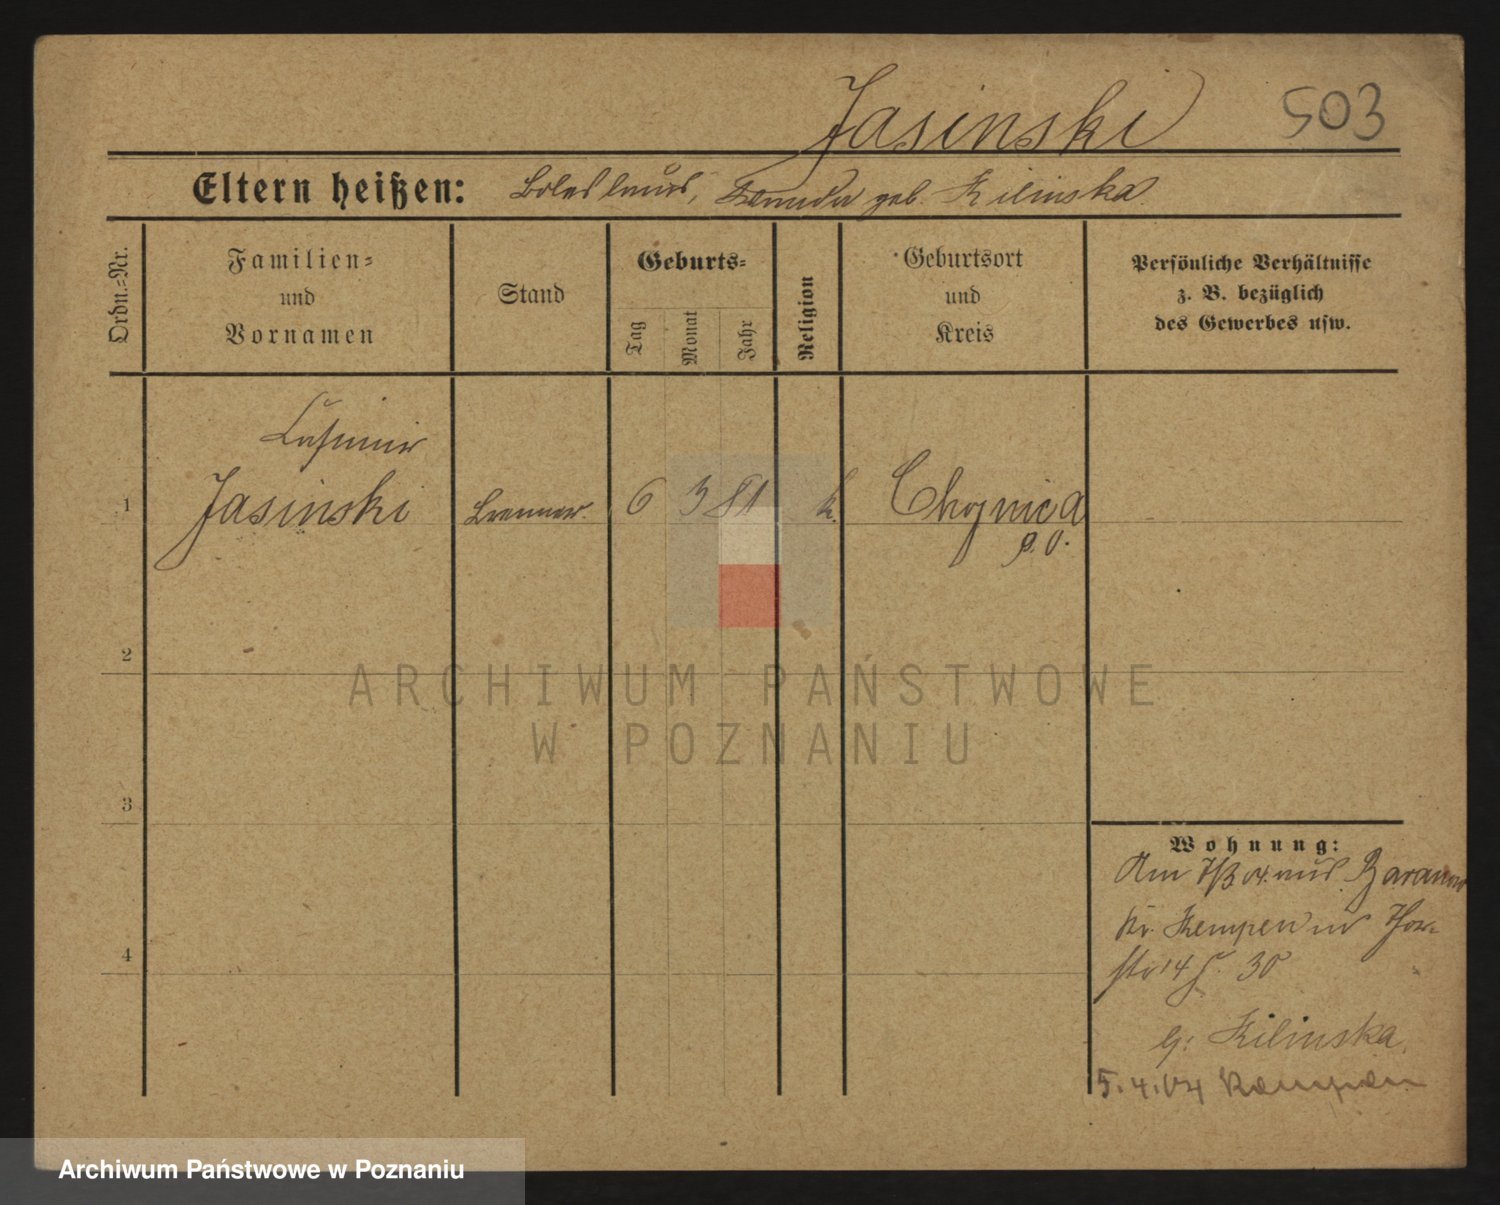 Jasinski 503
Eltern heißen: Boleslaus, geb. Kilinska
Ordn.-Nr.
Familien-
und
Vornamen
Stand
Geburts-
Tag
Monat
Jahr
Religion
Geburtsort
und
Kreis
Persönliche Verhältnisse
z. B. bezüglich
des Gewerbes usw.
Casimir
1 Jasinski Brenner 6 3 81 k. Chojnica
P. O.
2
3
4
Wohnung:
Am 7/3 04 aus Baranow
Kr. Kempen in Thor-
str 14 30
b: Kilinska
5.4.04 Kempen
ARCHIWUM PAŃSTWOWE
W POZNANIU
Archiwum Państwowe w Poznaniu